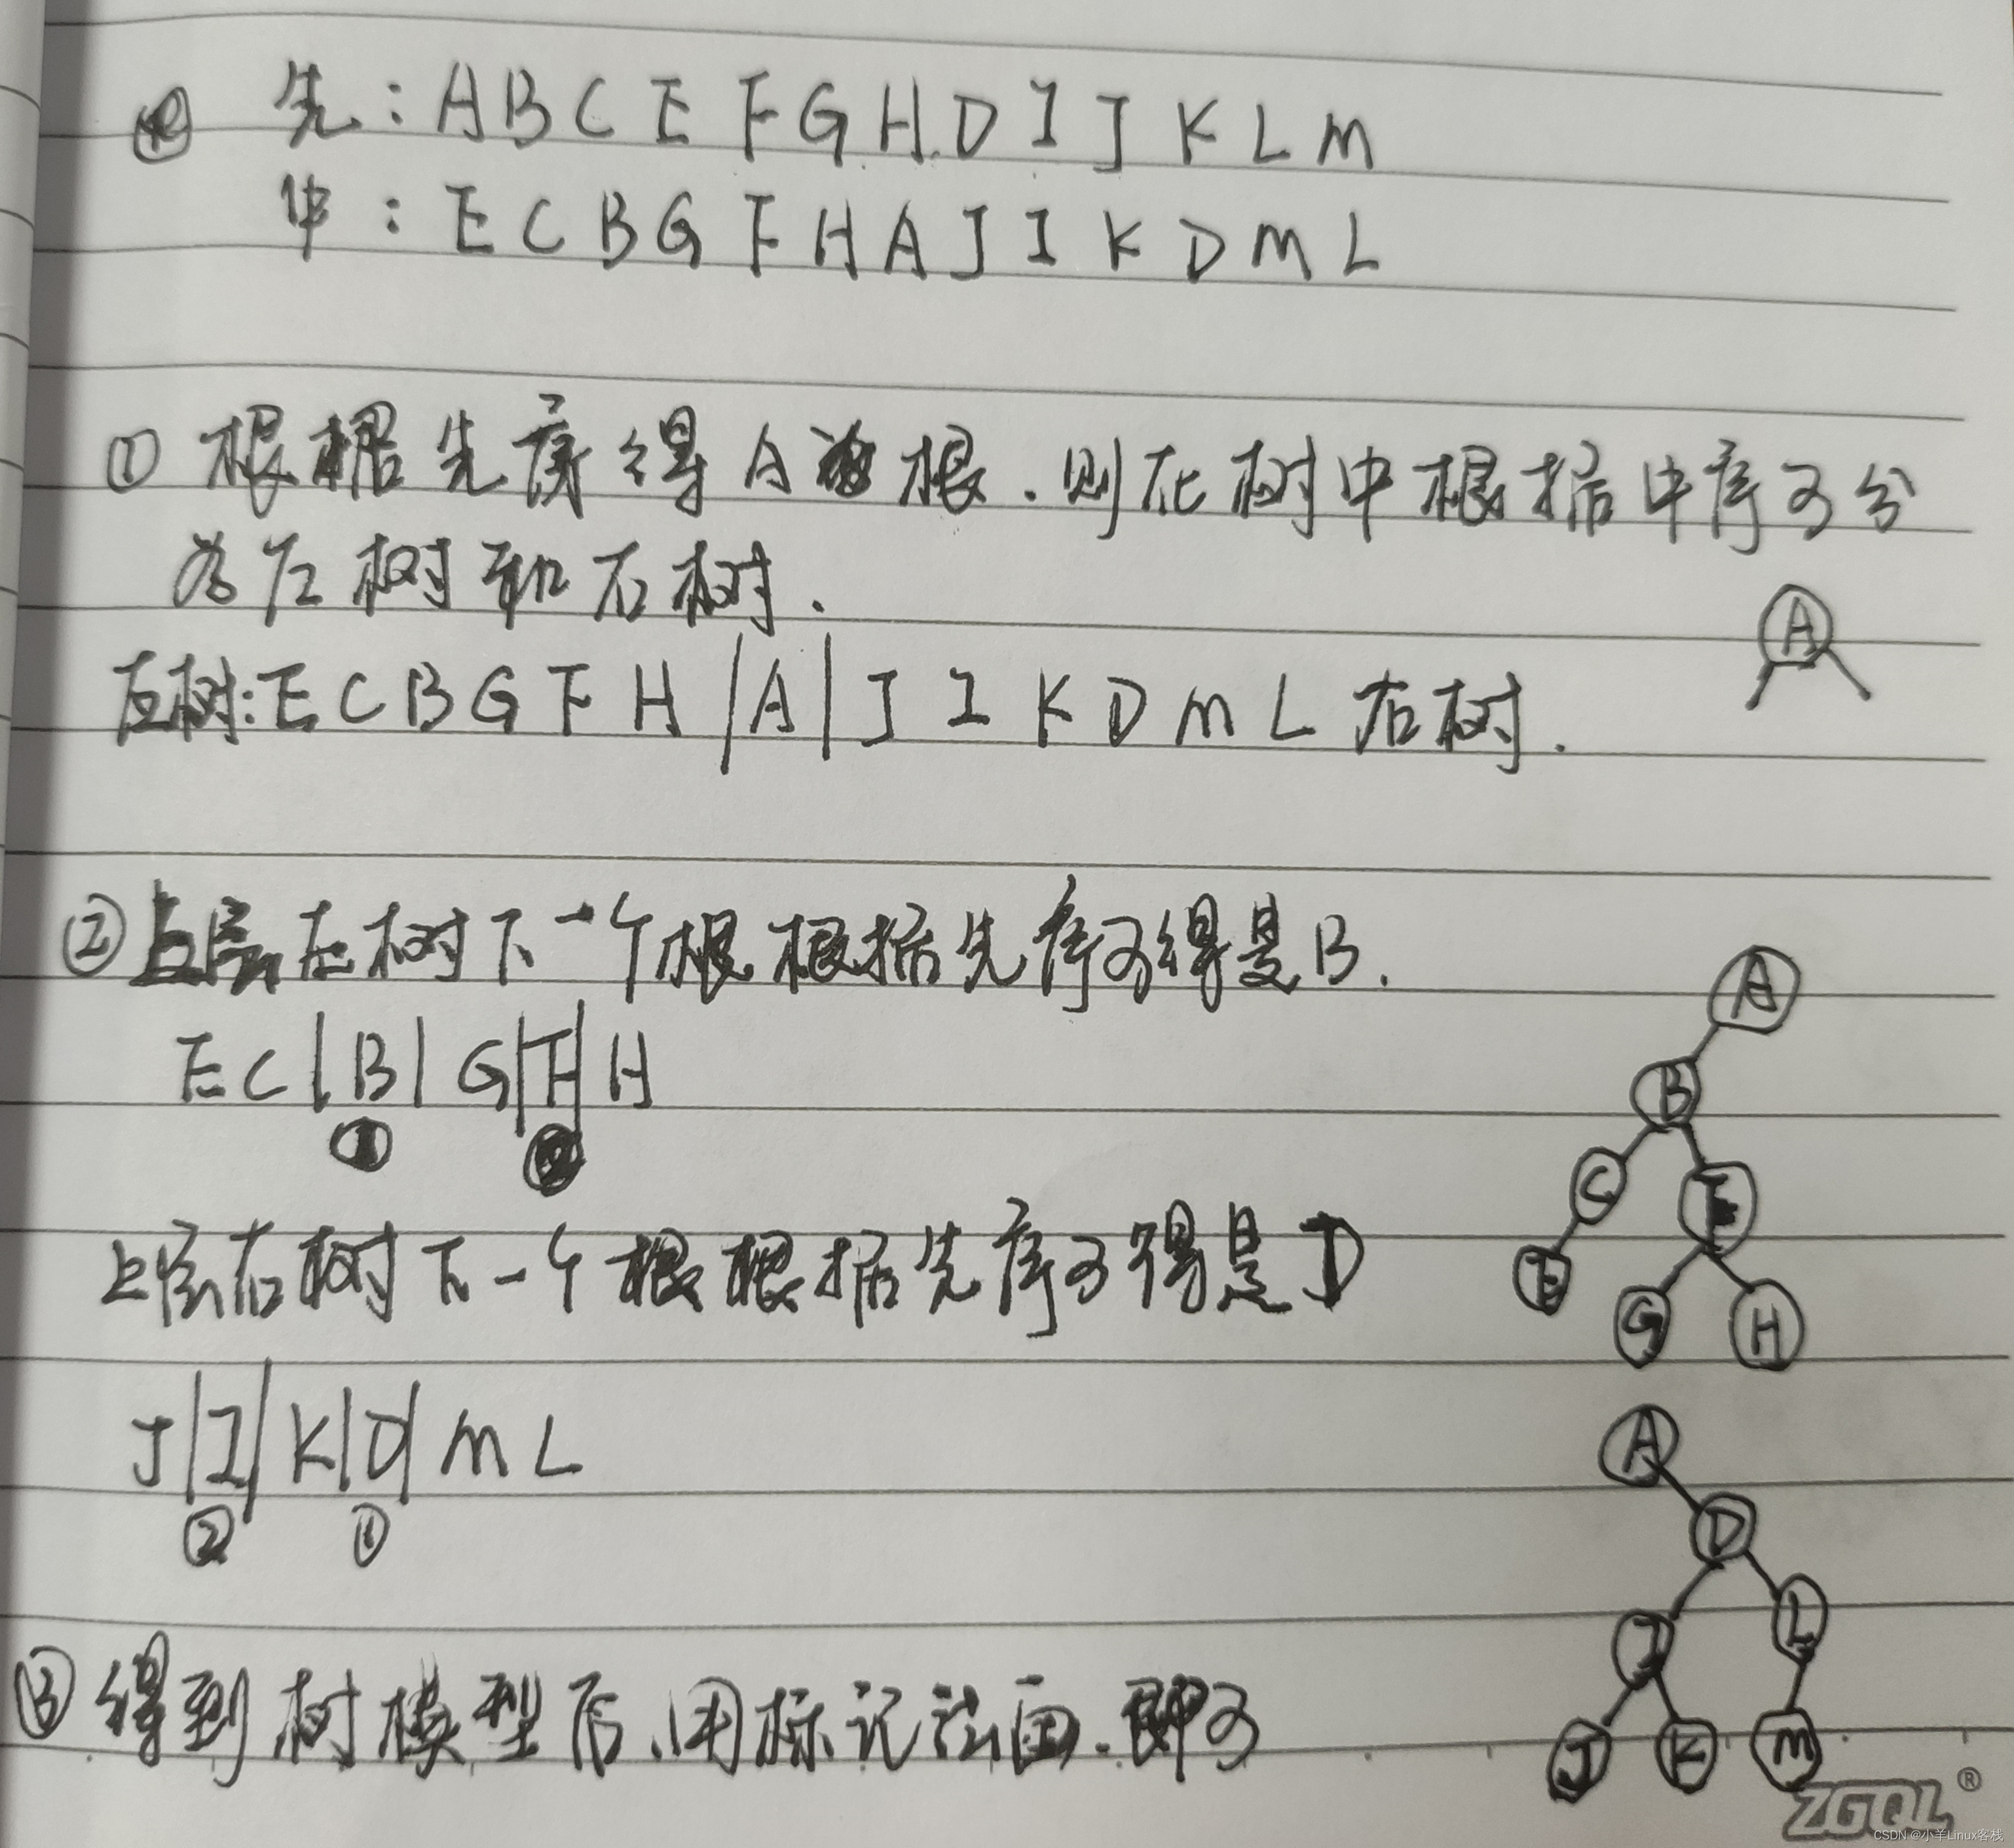 先：A B C E F G H D I J K L M
中：E C B G F H A J I K D M L
① 根据先序得A为根．则在树中根据中序可分
为左树和右树．
A
左树：E C B G F H |A| J I K D M L 右树．
② 上层左树下一个根根据先序可得是B．
E C |B| G |F| H
①
A
B
C F
E G H
上层右树下一个根根据先序可得是D
J |I| K |D| M L
② ①
A
D
I L
J K M
③ 得到树模型后、用标记法画．即可
ZGQL®
CSDN @小羊Linux客栈